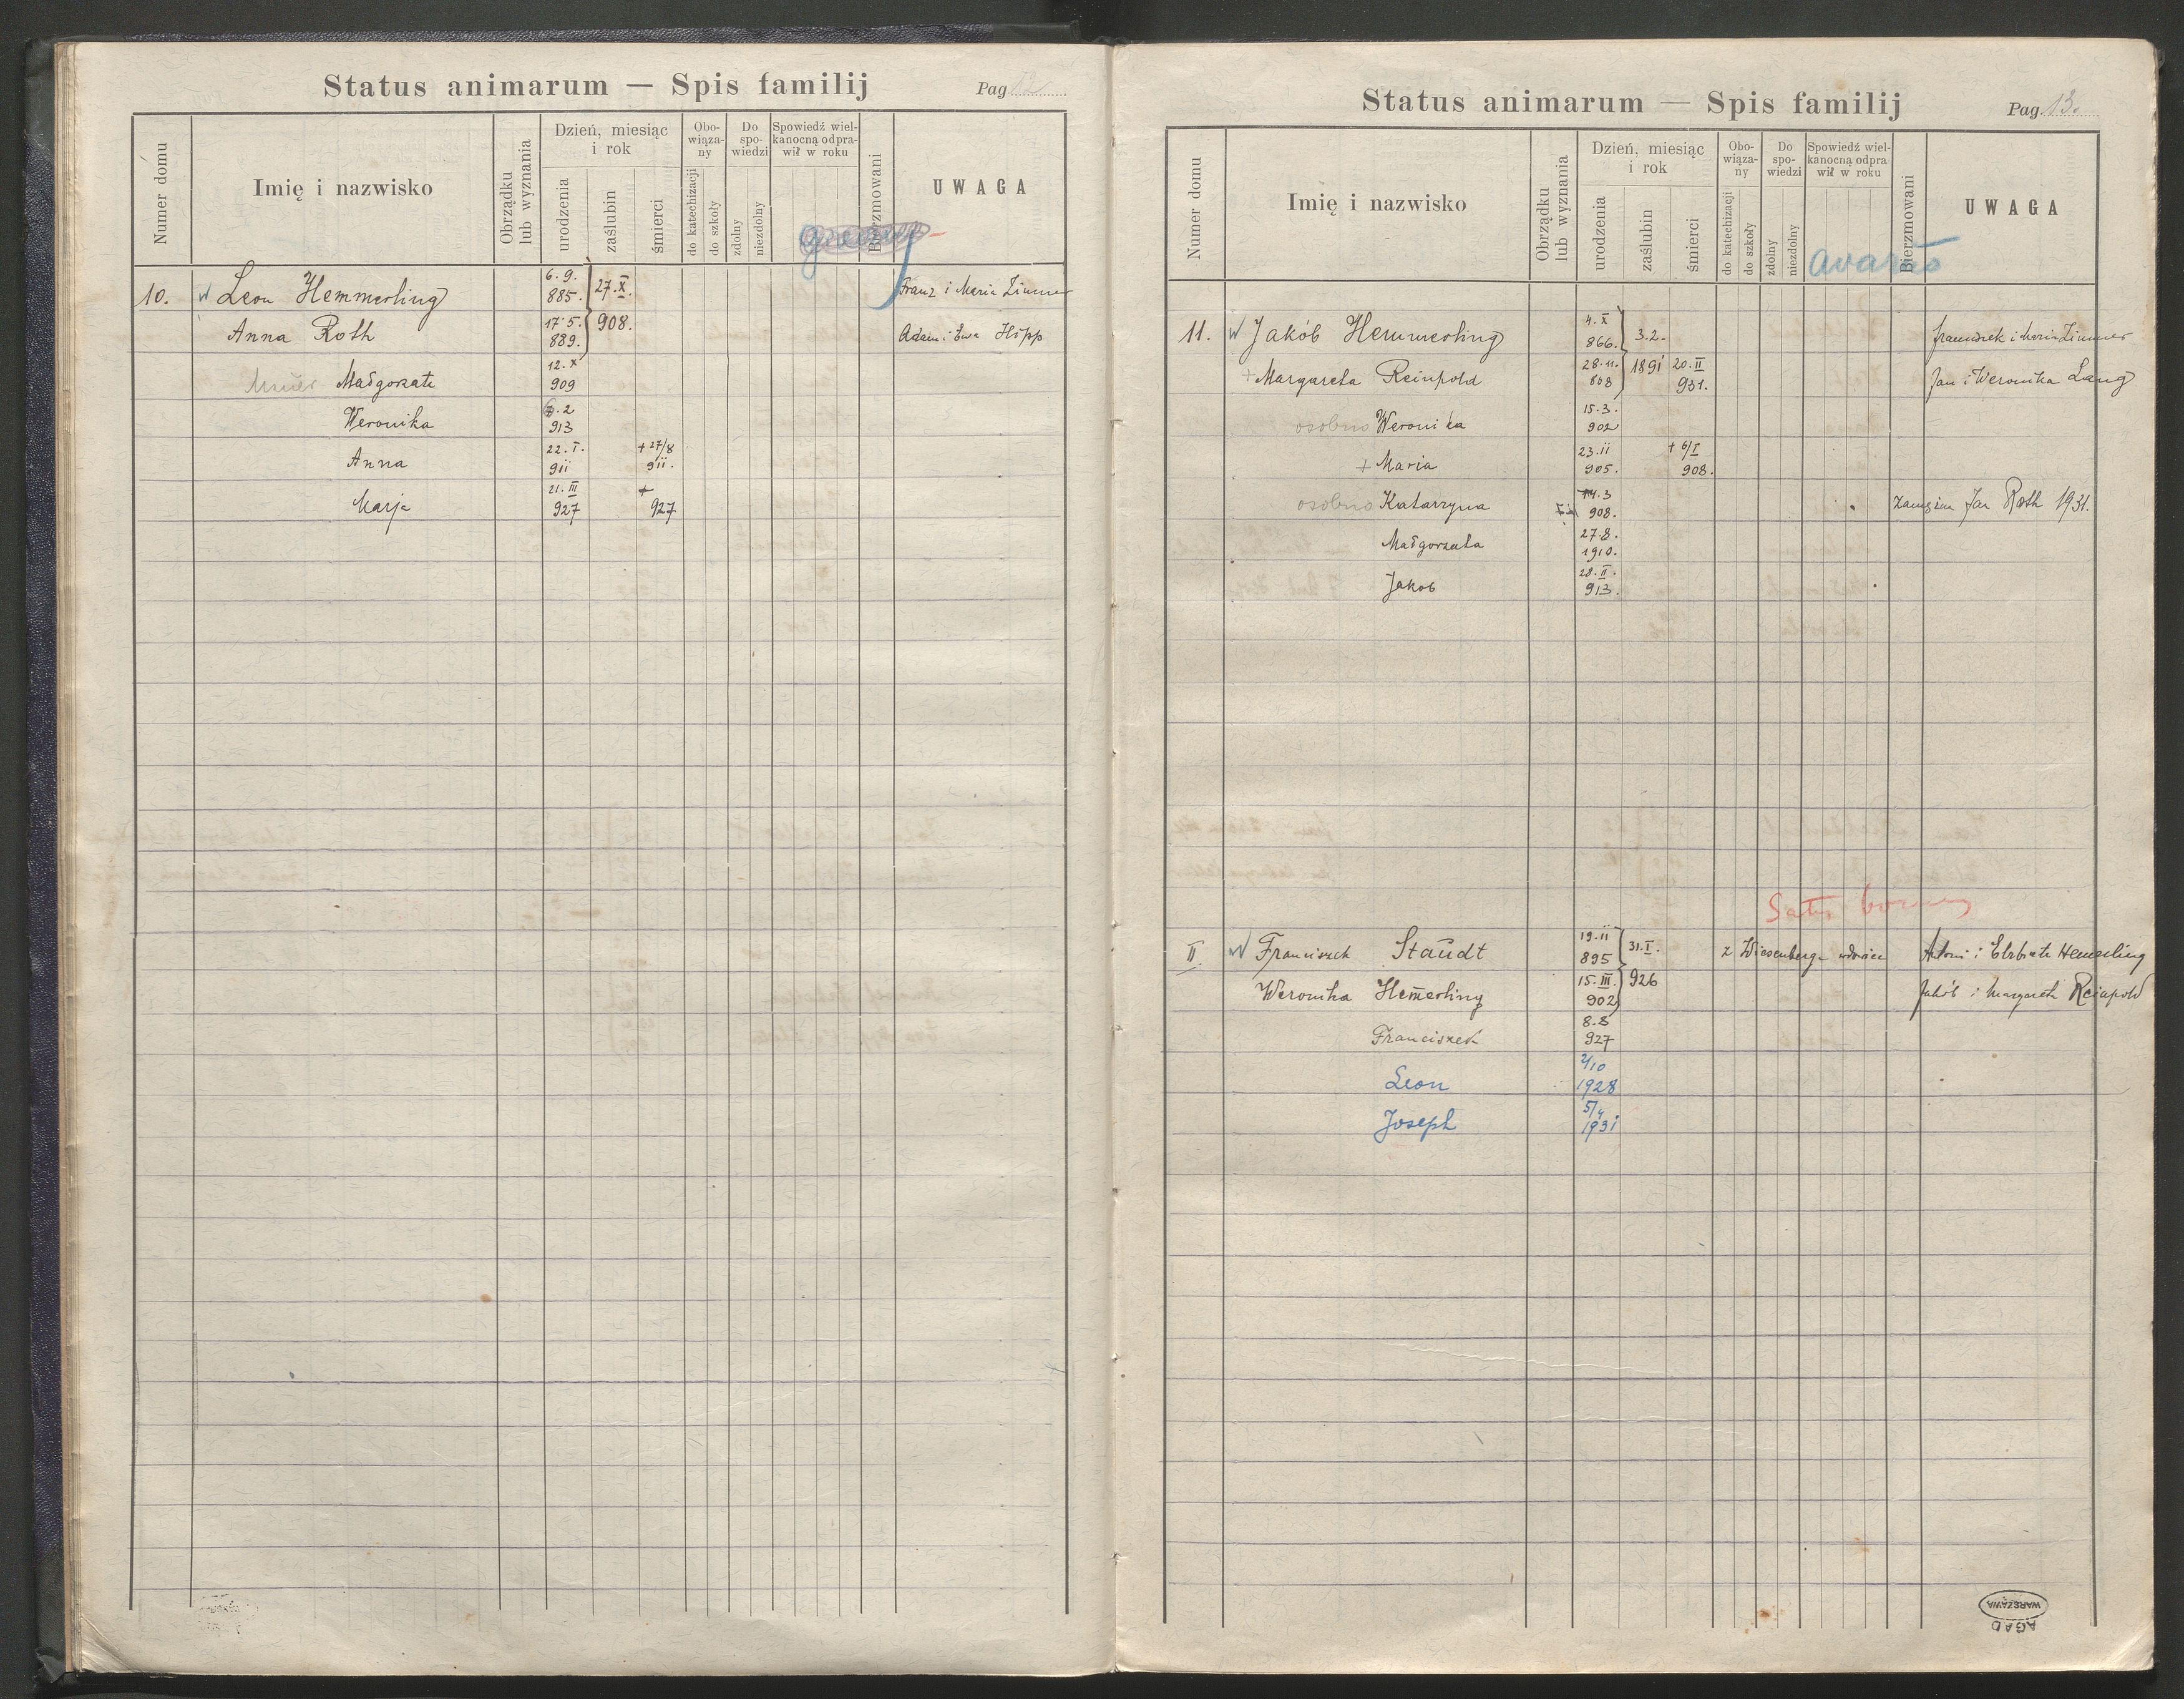 Status animarum — Spis familij
Pag. 12
Numer domu
Imię i nazwisko
Obrządku lub wyznania
Dzień, miesiąc i rok
urodzenia
zaślubin
śmierci
Obo-wiąza-ny
do katechizacji
do szkoły
Do spo-wiedzi
zdolny
niezdolny
Spowiedź wiel-kanocną odpra-wił w roku
Bierzmowani
UWAGA
10. W Leon Hemmerling 6.9. 885. 27.X. 908. Franz i Maria Zimmer
Anna Roth 17.5. 889. Adam i Ewa Hipp
Małgorzata 12.X 909
Weronika 2 913
Anna 22.I. 911 + 27/8 911.
Marja 21.III 927 + 927
Status animarum — Spis familij
Pag. 13.
Numer domu
Imię i nazwisko
Obrządku lub wyznania
Dzień, miesiąc i rok
urodzenia
zaślubin
śmierci
Obo-wiąza-ny
do katechizacji
do szkoły
Do spo-wiedzi
zdolny
niezdolny
Spowiedź wiel-kanocną odpra wił w roku
Bierzmowani
UWAGA
11. W Jakób Hemmerling 4.X 866. 3.2. 1891 Franciszek i Maria Zimmer
+ Margareta Reinpold 28.11. 868 20.II 931. Jan i Weronika Lang
osobno Weronika 15.3. 902
+ Maria 23.11 905. + 6/I 908.
osobno Katarzyna 14.3 908. zamężna Jan Roth 1931.
Małgorzata 27.8. 1910.
Jakob 28.II. 913.
II. W Franciszek Staudt 19.11 895 31.I. 926 z Wiesenberga wdowiec Antoni i Elżbieta Hemerling
Weronika Hem̄erling 15.III. 902 Jakób i Margareta Reinpold
Franciszek 8.8 927
Leon 2/10 1928
Joseph 5/4 1931
AGAD
WARSZAWA